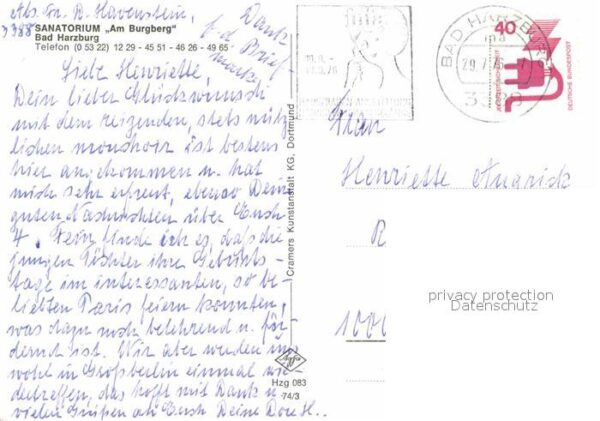 Abs. Fr. R. Havenstein,
3388
SANATORIUM „Am Burgberg"
Bad Harzburg
Telefon (0 53 22) 12 29 - 45 51 - 46 26 - 49 65
Dank
f. d. Brief-
marke
Liebe Henriette,
Dein lieber Glückwunsch
mit dem reizenden, stets nütz-
lichen mouchoir ist bestens
hier angekommen u. hat
mich sehr erfreut, ebenso Deine
guten Nachrichten über Euch
4. Fein finde ich es, daß die
jungen Töchter ihre Geburts-
tage im interessanten, so be-
liebten Paris feiern konnten,
was dazu noch belehrend u. för-
dernd ist. Wir aber werden uns
wohl in Großberlin einmal wie-
dertreffen, das hofft mit Dank u.
vielen Grüßen an Euch Deine Dore H..
Cramers Kunstanstalt KG, Dortmund
Hzg 083
74/3
BAD HARZBURG
29.7.76
40
DEUTSCHE BUNDESPOST
Frau
Henriette
R
1000
privacy protection
Datenschutz